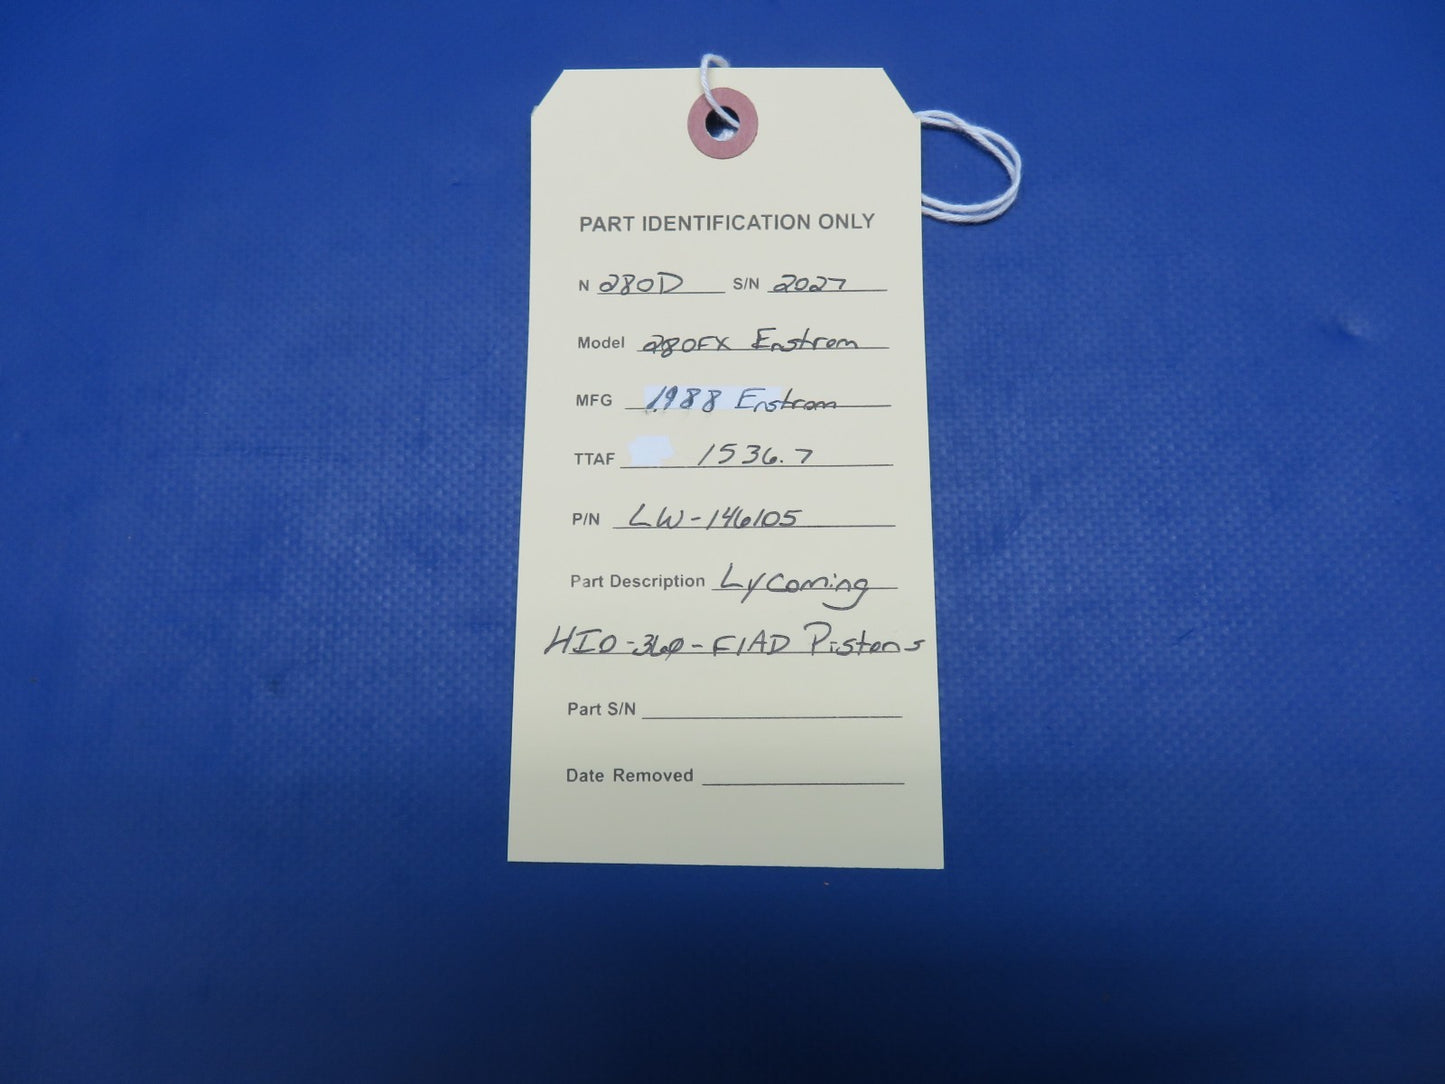 PART IDENTIFICATION ONLY
N 280D S/N 2027
Model 280FX Enstrom
MFG 1988 Enstrom
TTAF 1536.7
P/N LW-146105
Part Description Lycoming
HIO-360-F1AD Pistons
Part S/N
Date Removed